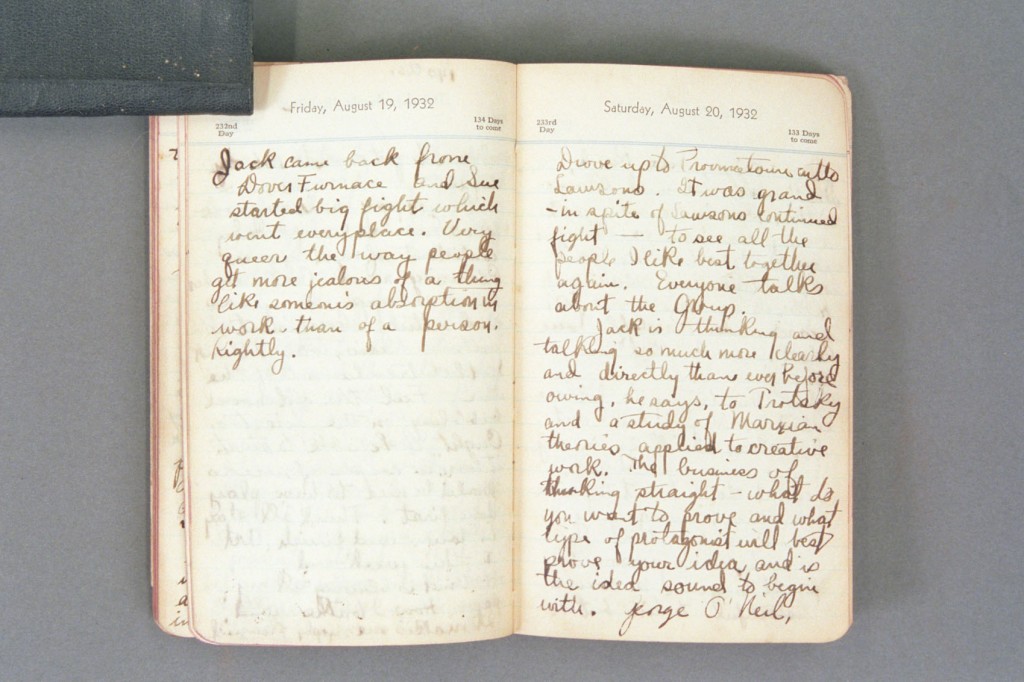 Friday, August 19, 1932
232nd
Day
134 Days
to come
Jack came back from
Dover Furnace and Sue
started big fight which
went everyplace. Very
queer the way people
get more jealous of a thing
like someone's absorption in
work than of a person.
Rightly.
Saturday, August 20, 1932
233rd
Day
133 Days
to come
Drove up to
Lawsons. It was grand
- in spite of Lawsons continued
fight — to see all the
people I like best together
again. Everyone talks
about the Group.
Jack is thinking and
talking so much more clearly
and directly than ever before
owing, he says, to Trotsky
and a study of Marxian
theories applied to creative
work. The business of
thinking straight - what do
you want to prove and what
type of protagonist will best
prove your idea and is
the idea sound to begin
with. O'Neil,